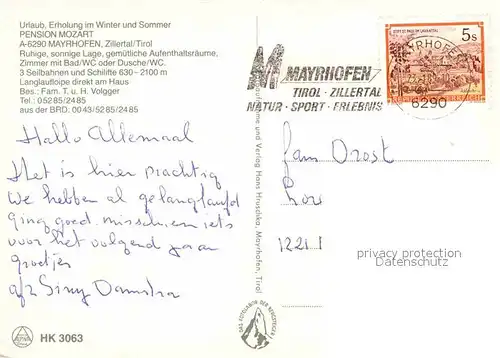 Urlaub, Erholung im Winter und Sommer
PENSION MOZART
A-6290 MAYRHOFEN, Zillertal/Tirol
Ruhige, sonnige Lage, gemütliche Aufenthaltsräume,
Zimmer mit Bad/WC oder Dusche/WC.
3 Seilbahnen und Schilifte 630 – 2100 m
Langlaufloipe direkt am Haus
Bes.: Fam. T. u. H. Volgger
Tel.: 05285/2485
aus der BRD: 0043/5285/2485
Hallo Allemaal
Het is hier prachtig
We hebben al gelanglaufd
ging goed misschien iets
voor het volgend jaar
groetjes
Siny
HK 3063
und Verlag Hans Hruschka, Mayrhofen, Tirol
MAYRHOFEN
TIROL · ZILLERTAL
NATUR · SPORT · ERLEBNIS
5s
6290
fam Drost
1221
privacy protection
Datenschutz